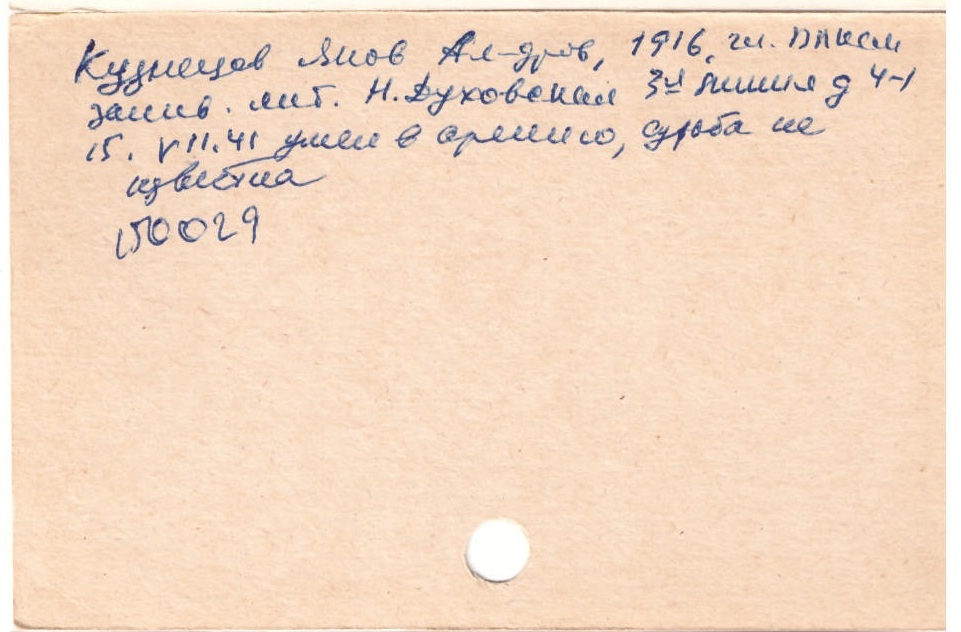 Кузнецов Яков Ал-дров, 1916, чл. ВЛКСМ
Н. Духовская 3-я линия д 4-1
15. VII.41 ушел в армию, судьба не
известна
150029